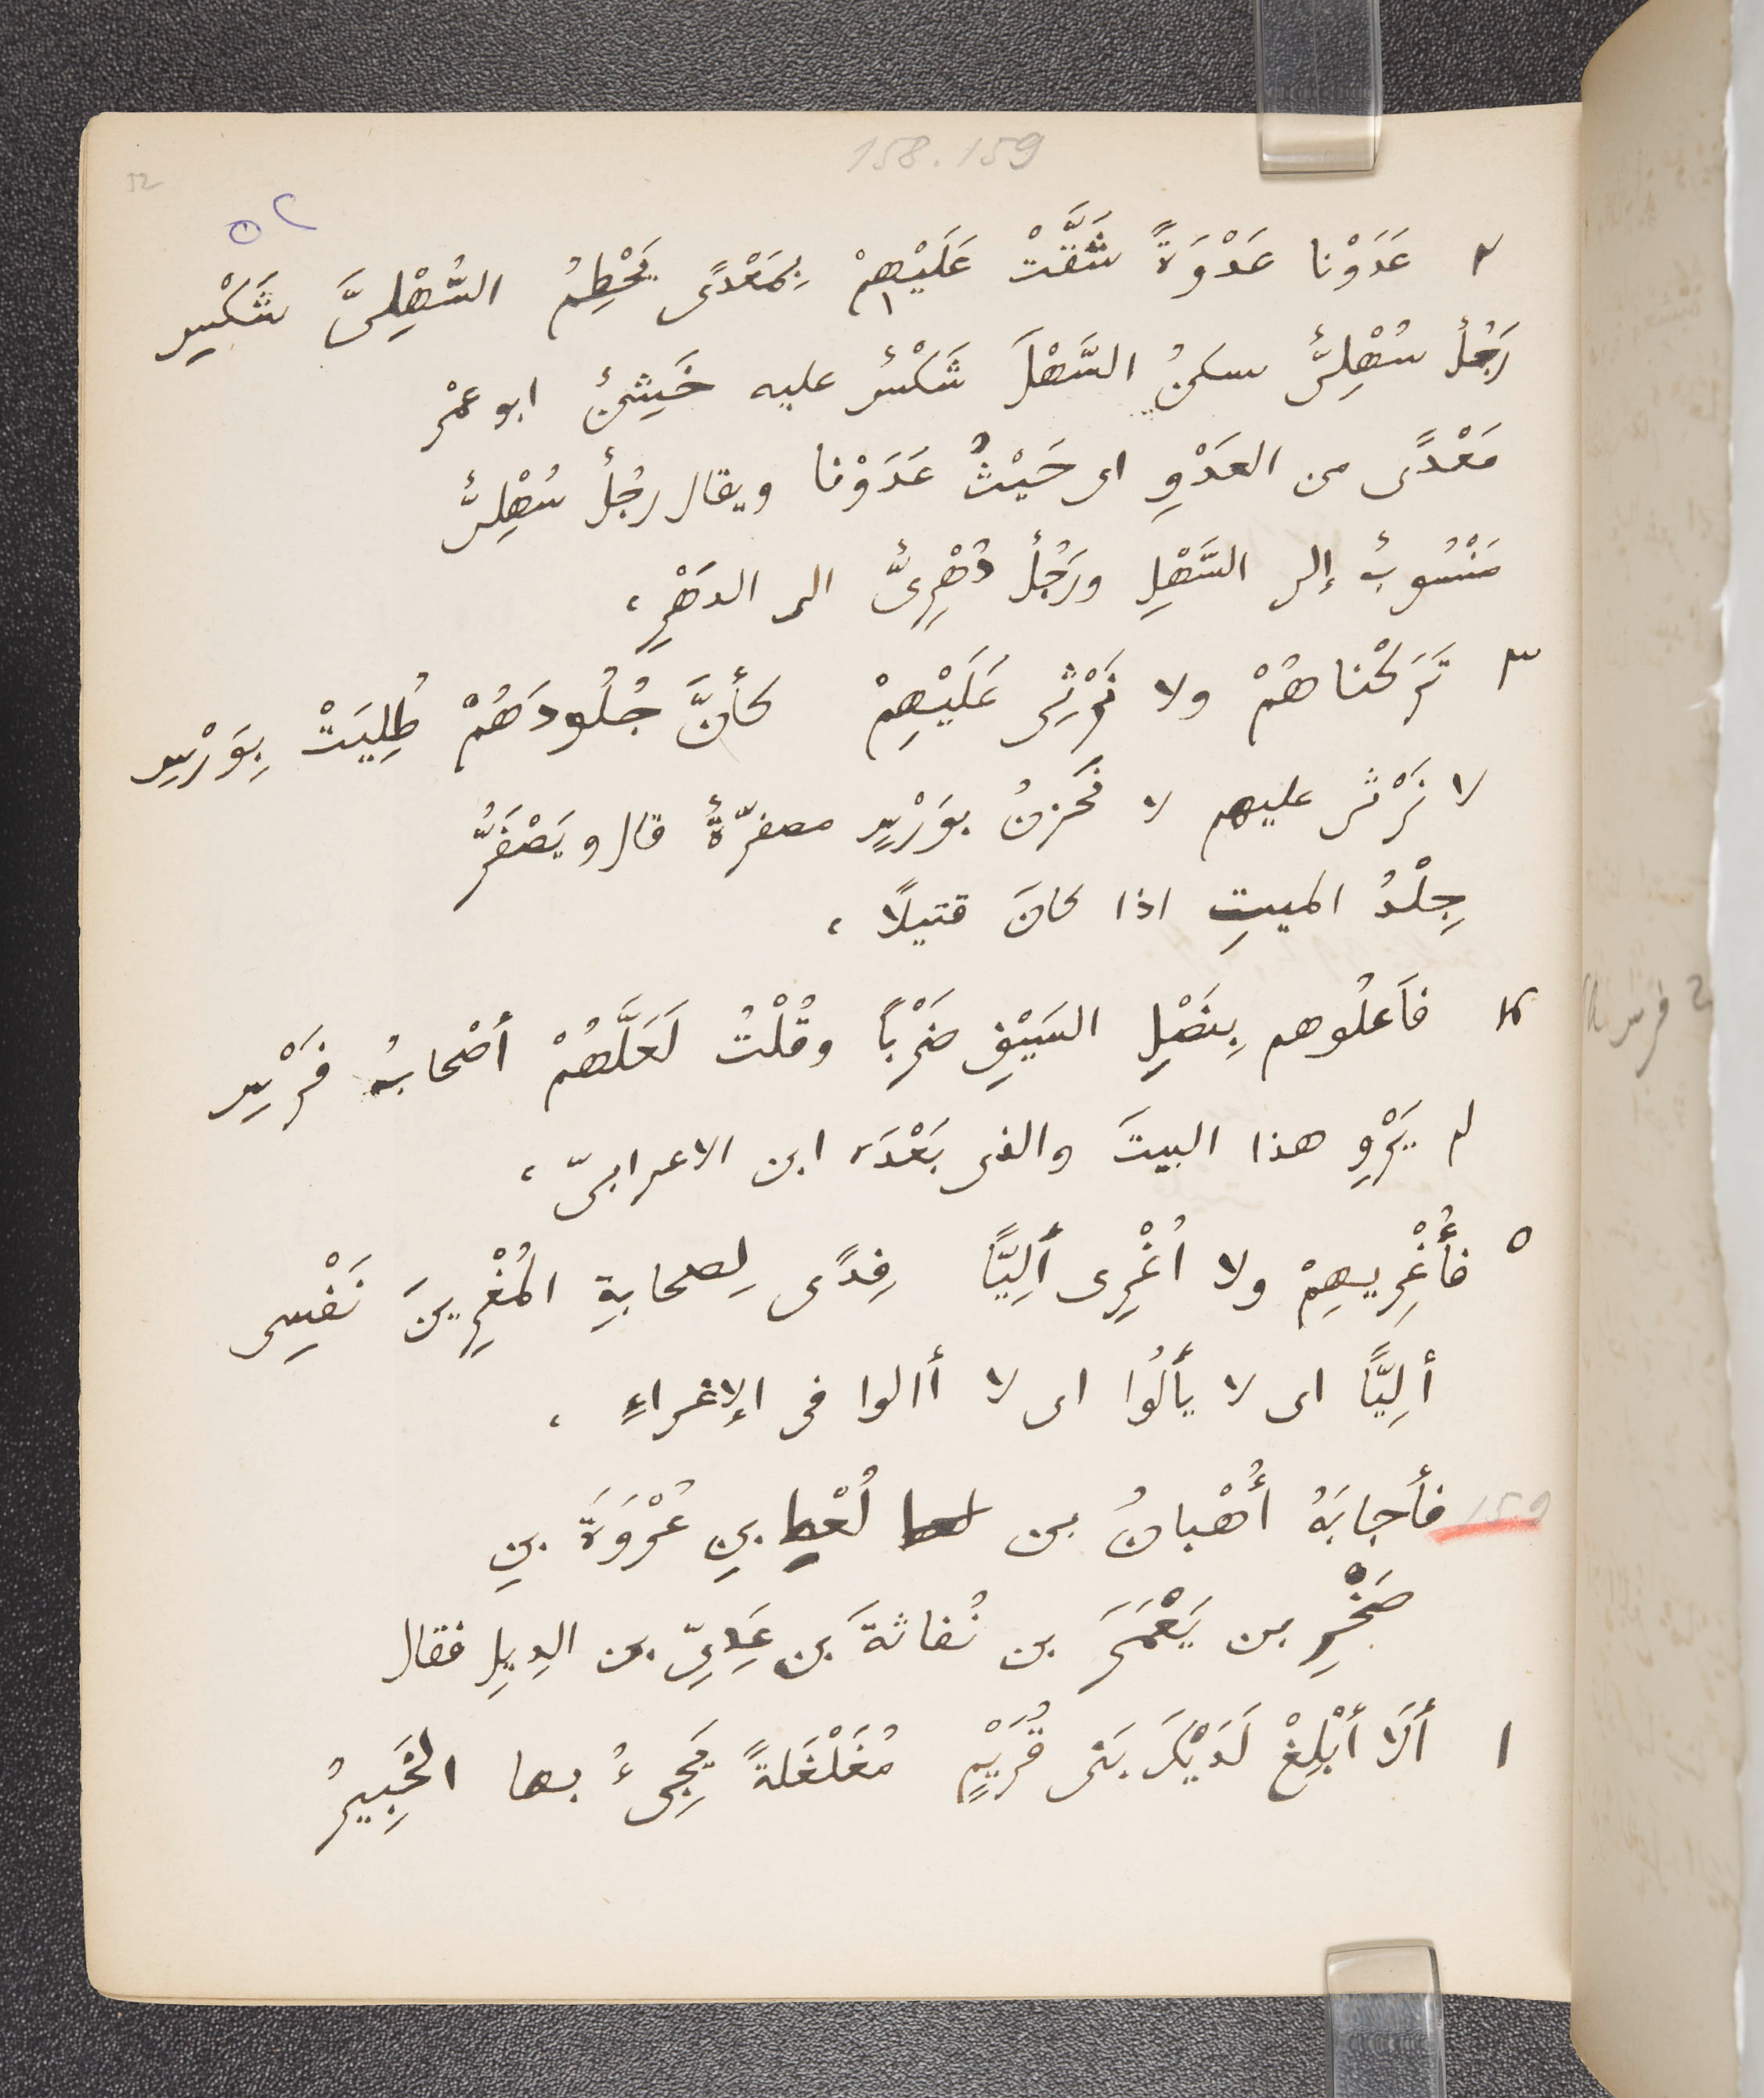 158.159
52
٥٢
٢ عَدَوْنا عَدْوَةً شَقَّتْ عَلَيْهِمْ بِمَعْدًى يَحْطِمُ السُّهْلِىَّ شَكْسِ
رَجُلٌ سُهْلِىٌّ سكنُ السَّهْلَ شَكْسٌ عليه خَشِنٌ ابو عمْر
مَعْدًى من العَدْوِ اى حَيْثُ عَدَوْنا ويقال رجُلٌ سُهْلِىٌّ
مَنْسُوبٌ إلى السَّهْلِ ورَجُلٌ دُهْرِىٌّ الى الدهْرِ،
٣ تَرَكْناهُمْ ولا نَرْثِى عَلَيْهِمْ كأنَّ جُلُودَهُمْ طُلِيَتْ بِوَرْسِ
لا نَرْثى عليهم لا نَحْزنُ بوَرْسٍ مصفرّةٌ قال ويَصْفَرُّ
جِلْدُ الميتِ اذا كانَ قتيلًا،
٤ فَاَعلُوهم بِنَصْلِ السَيْفِ ضَرْباً وقُلْتُ لَعَلَّهُمْ أصْحابُ فَرْسِ
لم يَرْوِ هذا البيتَ والذى بَعْدَه ابن الاعرابىّ،
٥ فأُغْرِيهِمْ ولا اُغْرِى ألِيًّا فِدًى لِصحابةِ المُغْرِينَ نَفْسِى
ألِيًّا اى لا يألُوا اى لا أالوا فى الإغراءِ،
159 فأجابَهُ أُهْبانُ بن لُعْطِ بنِ عُرْوَةَ بنِ
صَخْرِ بن يَعْمَرَ بن نُفاثةَ بن عَدِىِّ بن الدِيلِ فقال
١ أَلَا أَبْلِغْ لَدَيْكَ بَنى قُرَيْمٍ مُغَلْغَلَةً يَجِىءُ بها الخَبِيرُ